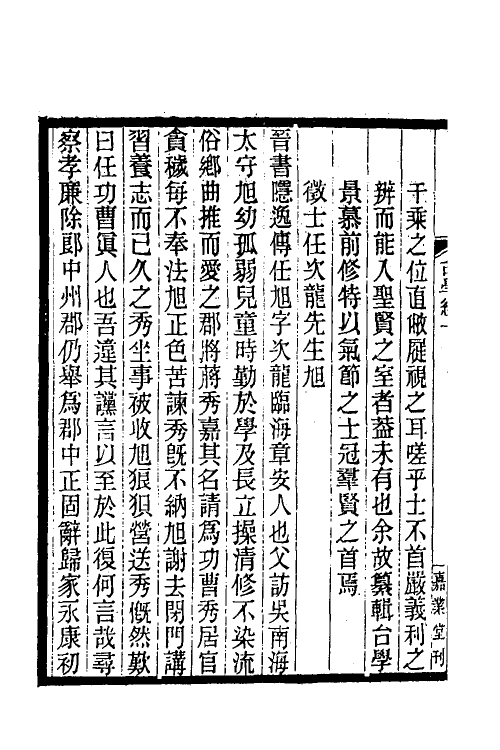 千乘之位直敝屣視之耳嗟乎士不首嚴義利之
辨而能入聖賢之室者葢未有也余故纂輯台學
景慕前修特以氣節之士冠羣賢之首焉
徵士任次龍先生旭
晉書隱逸傳任旭字次龍臨海章安人也父訪吳南海
太守旭幼孤弱兒童時勤於學及長立操清修不染流
俗鄉曲推而愛之郡將蔣秀嘉其名請爲功曹秀居官
貪穢每不奉法旭正色苦諫秀旣不納旭謝去閉門講
習養志而已久之秀坐事被收旭狼狽營送秀慨然歎
曰任功曹眞人也吾違其讜言以至於此復何言哉尋
察孝廉除郎中州郡仍舉爲郡中正固辭歸家永康初
嘉業堂刊